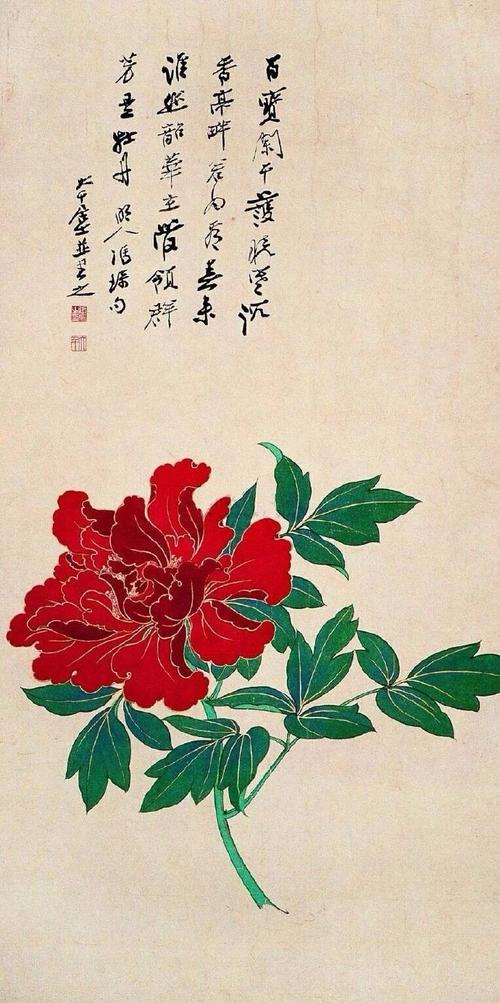 百寶闌干護曉寒沉
香亭畔若為看春來
誰韶華主領群
芳是牡丹 明人馮琢句
大千並書之